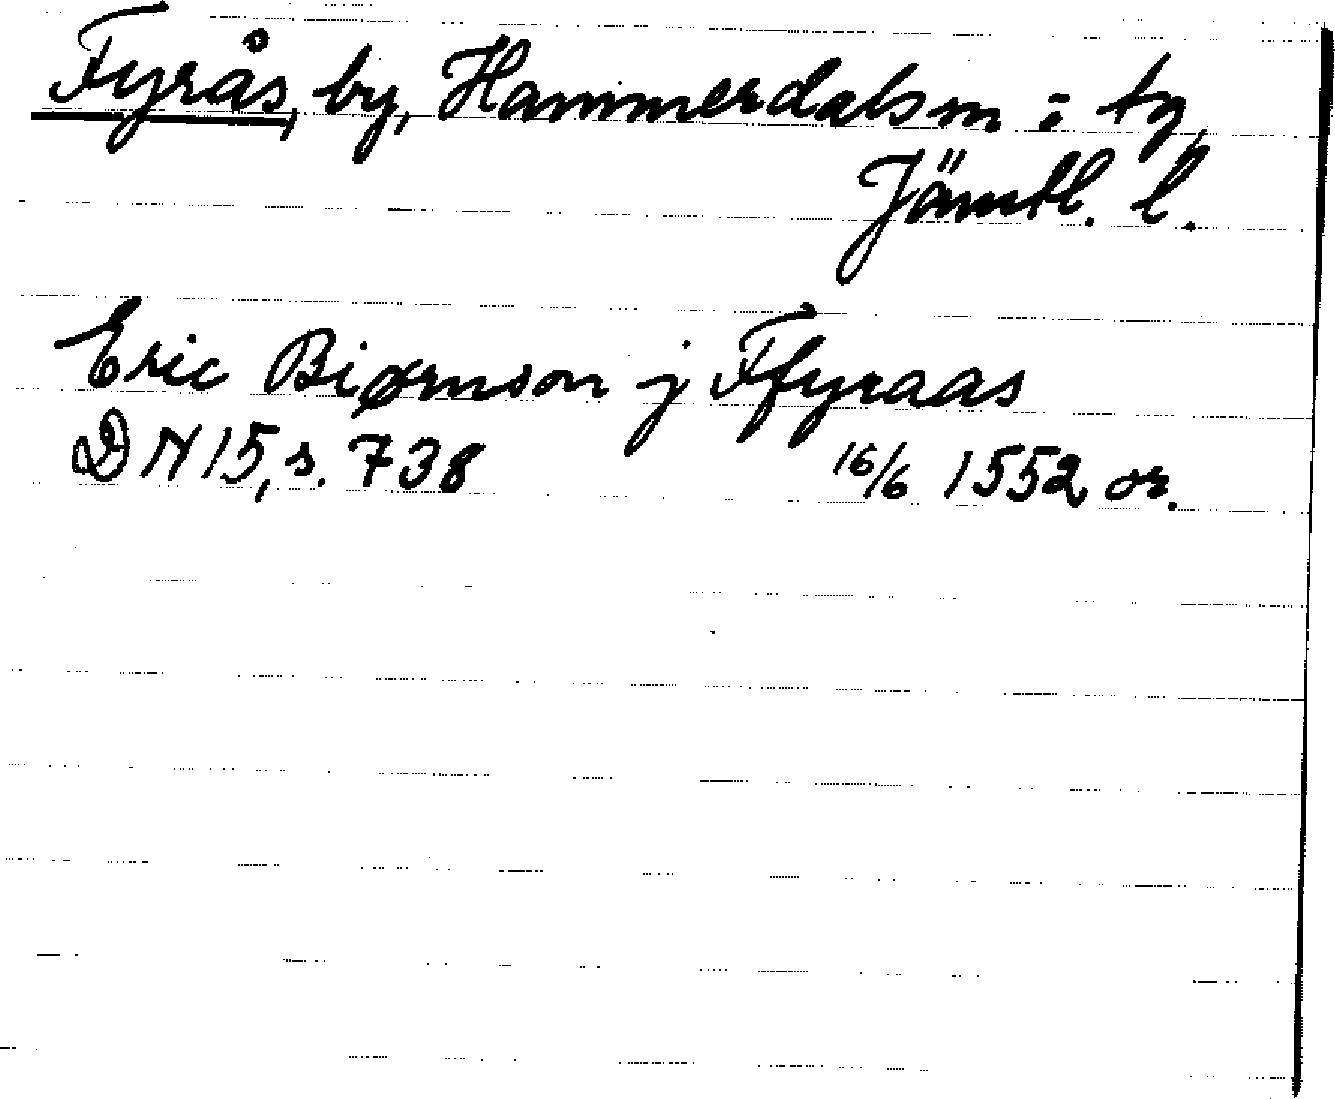 Fyrås, by, Hammerdals sn o tg,
Jämtl. l.
Eric Biørnson j Ffyraas
DN 15, s. 738 16/6 1552 or.